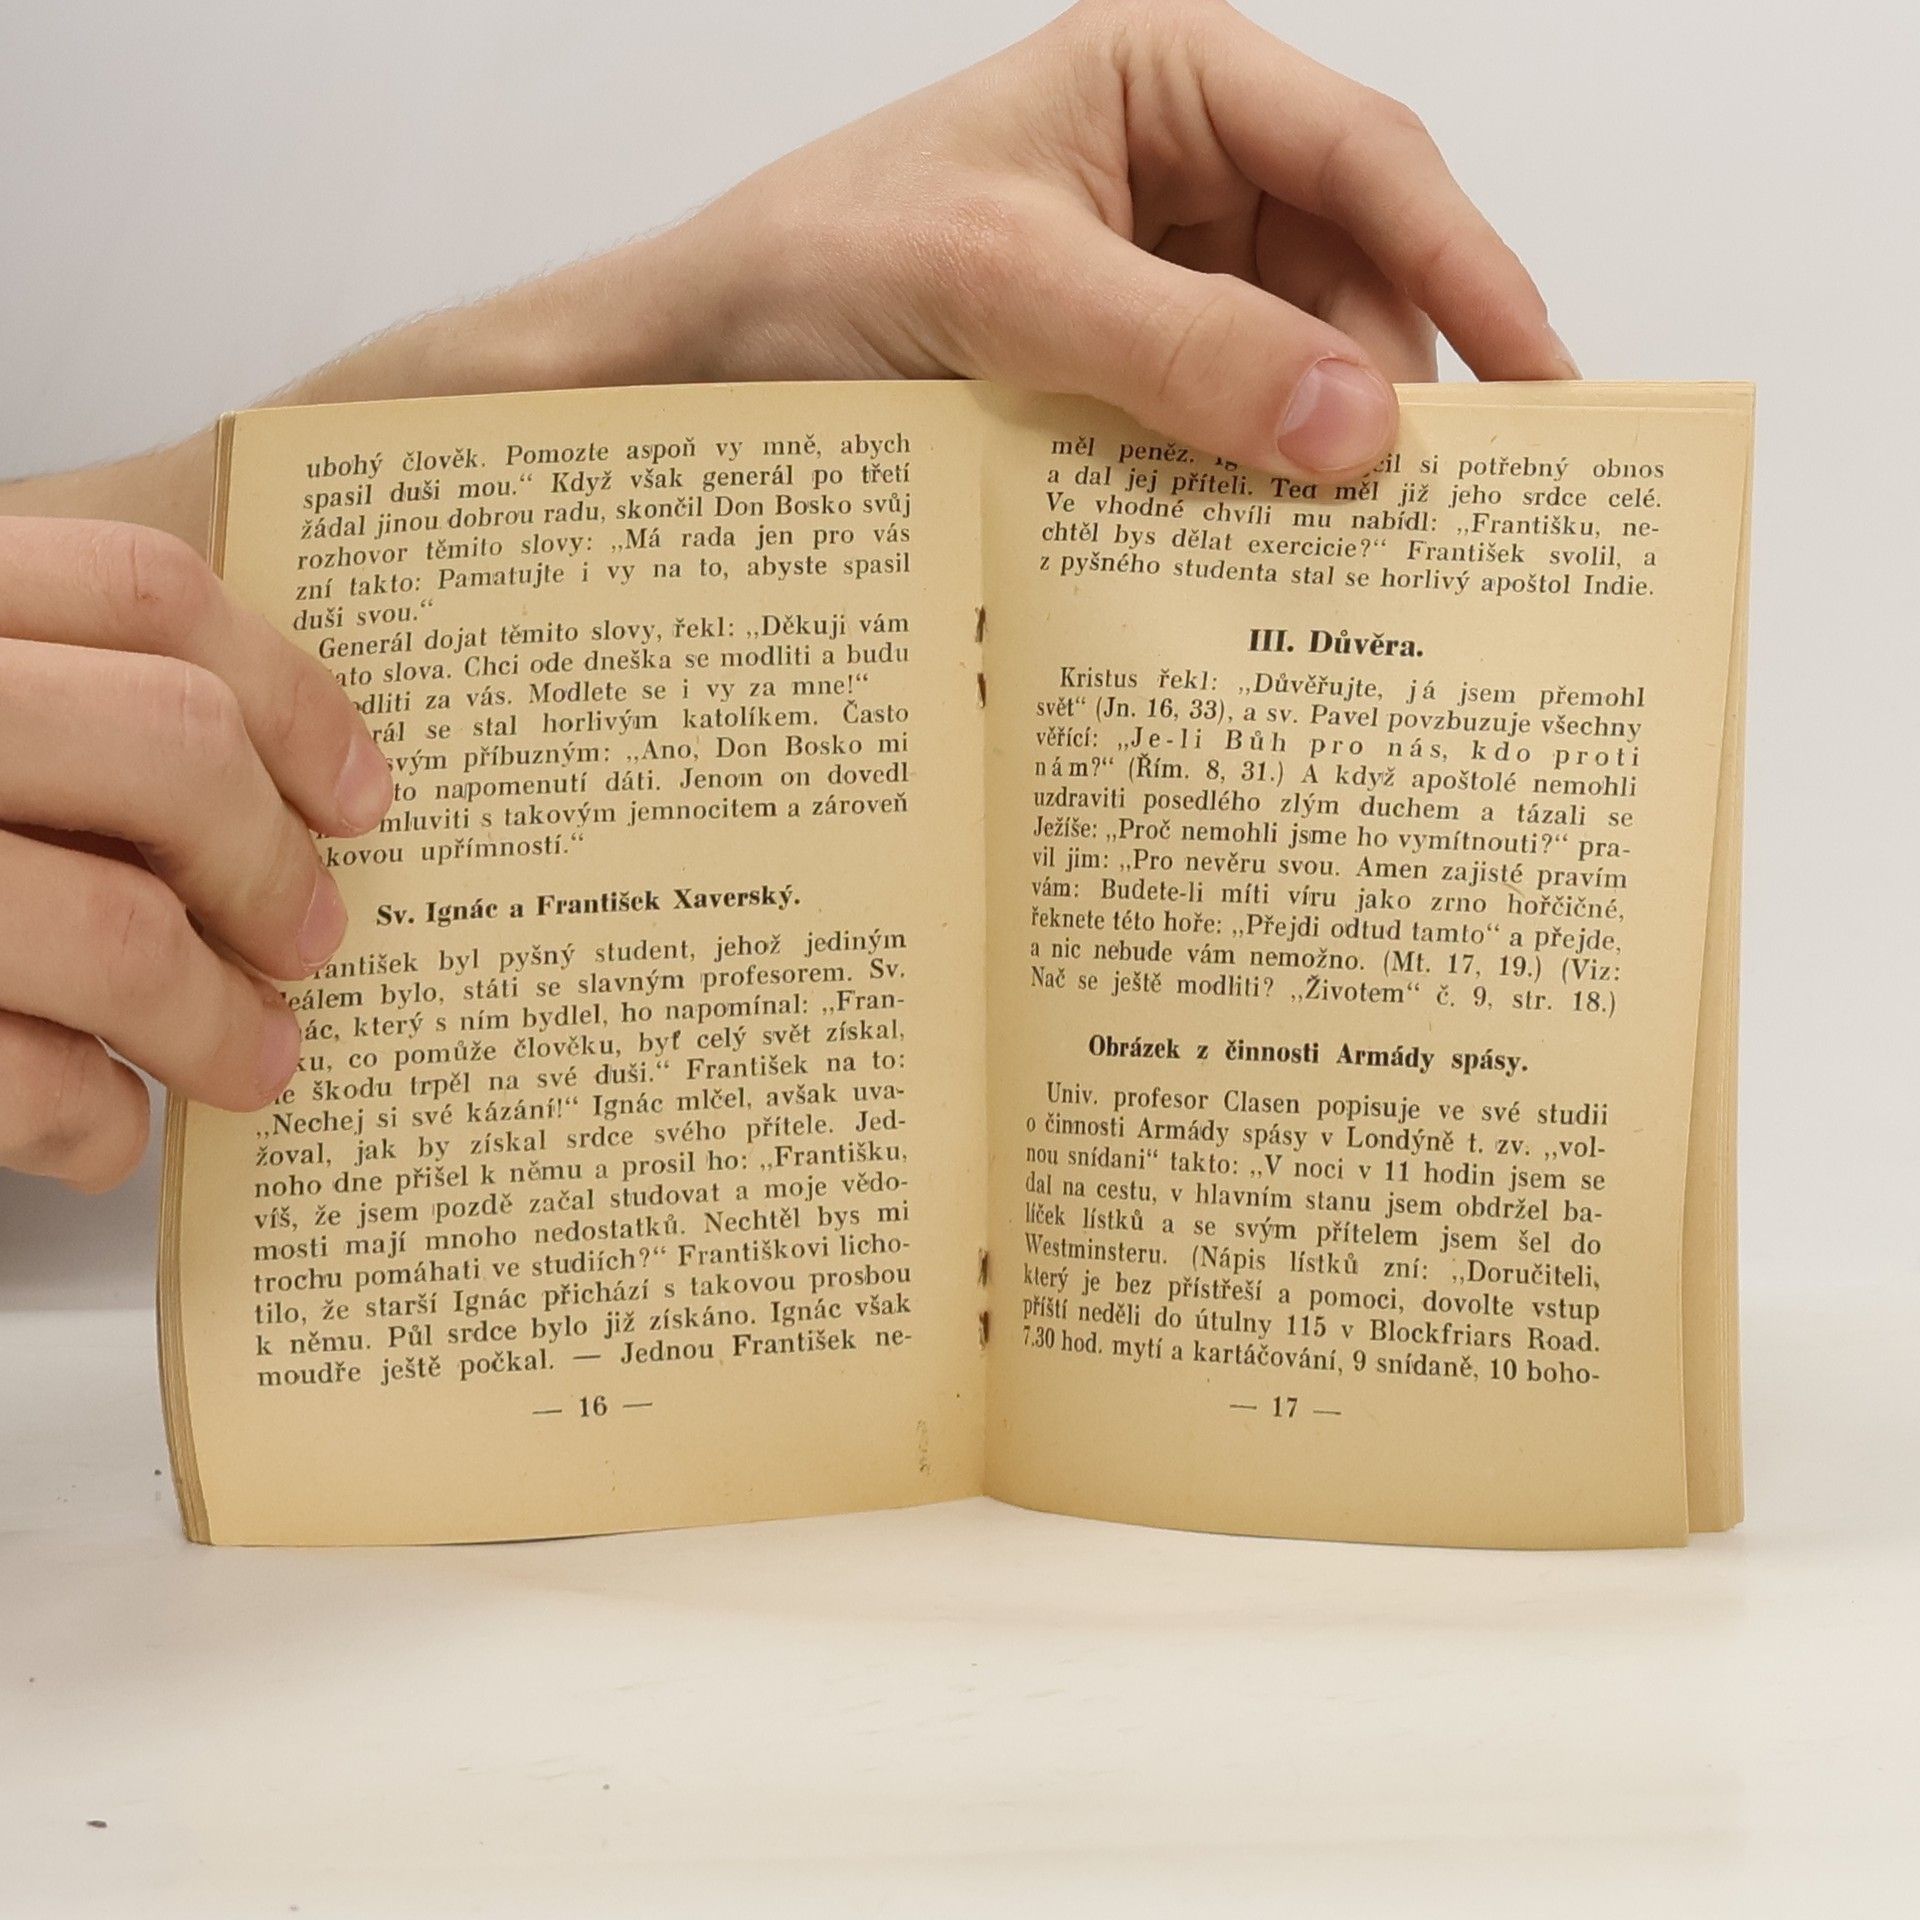 ubohý člověk. Pomozte aspoň vy mně, abych
spasil duši mou.“ Když však generál po třetí
žádal jinou dobrou radu, skončil Don Bosko svůj
rozhovor těmito slovy: „Má rada jen pro vás
zní takto: Pamatujte i vy na to, abyste spasil
duši svou.“
Generál dojat těmito slovy, řekl: „Děkuji vám
slova. Chci ode dneška se modliti a budu
za vás. Modlete se i vy za mne!“
se stal horlivým katolíkem. Často
svým příbuzným: „Ano, Don Bosko mi
napomenutí dáti. Jenom on dovedl
mluviti s takovým jemnocitem a zároveň
upřímností.“
Sv. Ignác a František Xaverský.
František byl pyšný student, jehož jediným
bylo, státi se slavným profesorem. Sv.
který s ním bydlel, ho napomínal: „Fran-
co pomůže člověku, byť celý svět získal,
škodu trpěl na své duši.“ František na to:
„Nechej si své kázání!“ Ignác mlčel, avšak uva-
žoval, jak by získal srdce svého přítele. Jed-
noho dne přišel k němu a prosil ho: „Františku,
víš, že jsem pozdě začal studovat a moje vědo-
mosti mají mnoho nedostatků. Nechtěl bys mi
trochu pomáhati ve studiích?“ Františkovi licho-
tilo, že starší Ignác přichází s takovou prosbou
k němu. Půl srdce bylo již získáno. Ignác však
moudře ještě počkal. — Jednou František ne-
— 16 —
měl peněz. si potřebný obnos
a dal jej příteli. Teď měl již jeho srdce celé.
Ve vhodné chvíli mu nabídl: „Františku, ne-
chtěl bys dělat exercicie?“ František svolil, a
z pyšného studenta stal se horlivý apoštol Indie.
III. Důvěra.
Kristus řekl: „Důvěřujte, já jsem přemohl
svět“ (Jn. 16, 33), a sv. Pavel povzbuzuje všechny
věřící: „Je-li Bůh pro nás, kdo proti
nám?“ (Řím. 8, 31.) A když apoštolé nemohli
uzdraviti posedlého zlým duchem a tázali se
Ježíše: „Proč nemohli jsme ho vymítnouti?“ pra-
vil jim: „Pro nevěru svou. Amen zajisté pravím
vám: Budete-li míti víru jako zrno hořčičné,
řeknete této hoře: „Přejdi odtud tamto“ a přejde,
a nic nebude vám nemožno. (Mt. 17, 19.) (Viz:
Nač se ještě modliti? „Životem“ č. 9, str. 18.)
Obrázek z činnosti Armády spásy.
Univ. profesor Clasen popisuje ve své studii
o činnosti Armády spásy v Londýně t. zv. „vol-
nou snídani“ takto: „V noci v 11 hodin jsem se
dal na cestu, v hlavním stanu jsem obdržel ba-
líček lístků a se svým přítelem jsem šel do
Westminsteru. (Nápis lístků zní: „Doručiteli,
který je bez přístřeší a pomoci, dovolte vstup
příští neděli do útulny 115 v Blockfriars Road.
7.30 hod. mytí a kartáčování, 9 snídaně, 10 boho-
— 17 —